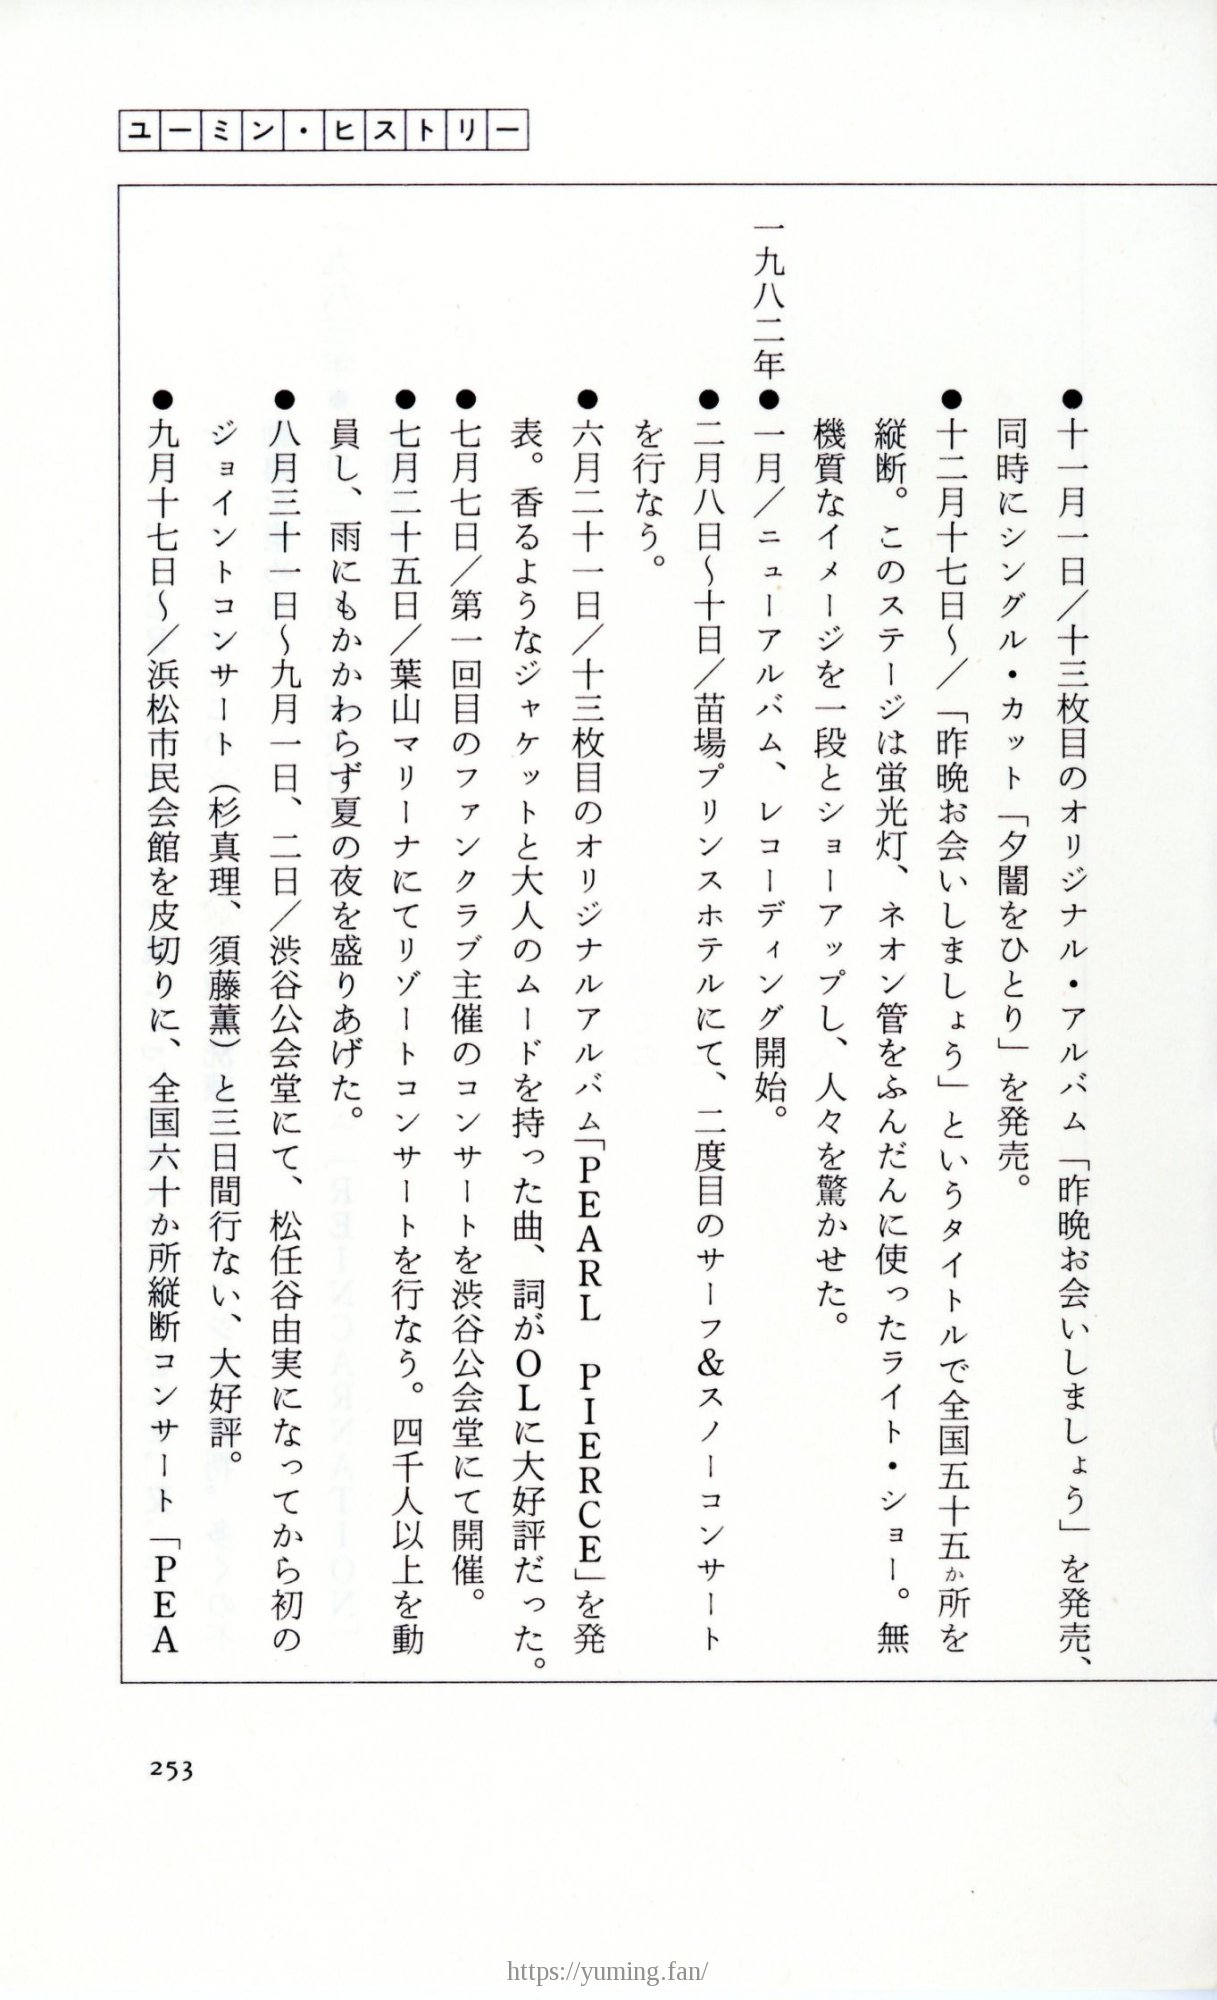 ユーミン・ヒストリー
●十一月一日／十三枚目のオリジナル・アルバム「昨晩お会いしましょう」を発売、
同時にシングル・カット「夕闇をひとり」を発売。
●十二月十七日～／「昨晩お会いしましょう」というタイトルで全国五十五か所を
縦断。このステージは蛍光灯、ネオン管をふんだんに使ったライト・ショー。無
機質なイメージを一段とショーアップし、人々を驚かせた。
一九八二年●一月／ニューアルバム、レコーディング開始。
●二月八日～十日／苗場プリンスホテルにて、二度目のサーフ&スノーコンサート
を行なう。
●六月二十一日／十三枚目のオリジナルアルバム「PEARL PIERCE」を発
表。香るようなジャケットと大人のムードを持った曲、詞がOLに大好評だった。
●七月七日／第一回目のファンクラブ主催のコンサートを渋谷公会堂にて開催。
●七月二十五日／葉山マリーナにてリゾートコンサートを行なう。四千人以上を動
員し、雨にもかかわらず夏の夜を盛りあげた。
●八月三十一日～九月一日、二日／渋谷公会堂にて、松任谷由実になってから初の
ジョイントコンサート（杉真理、須藤薫）と三日間行ない、大好評。
●九月十七日～／浜松市民会館を皮切りに、全国六十か所縦断コンサート「PEA
253
https://yuming.fan/